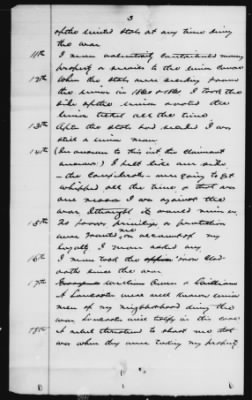 3
of the United States at any time during
the war
11th I never voluntarily contributed money
property or services to the Union
12th When the State were seceding from
the Union in 1860 & 1861 I took the
side of the Union & voted the
Union ticket all the time
13th After the State had seceded I was
still a Union man
14th (In answer to this int the Claimant
answers) I felt like our side
- the Confederate - were going to get
whipped all the time, & that was
one reason I was against the
war. I thought it would ruin us.
15th No favor privilege or protection
was granted me on account of my
loyalty I never asked any
16th I never took the iron clad
oath since the war
17th William Owen & William
A Lancaster were well known Union
men of my neighborhood during the
war Lancaster will testify in this case
18th A rebel threatened to shoot me
when they were taking my property